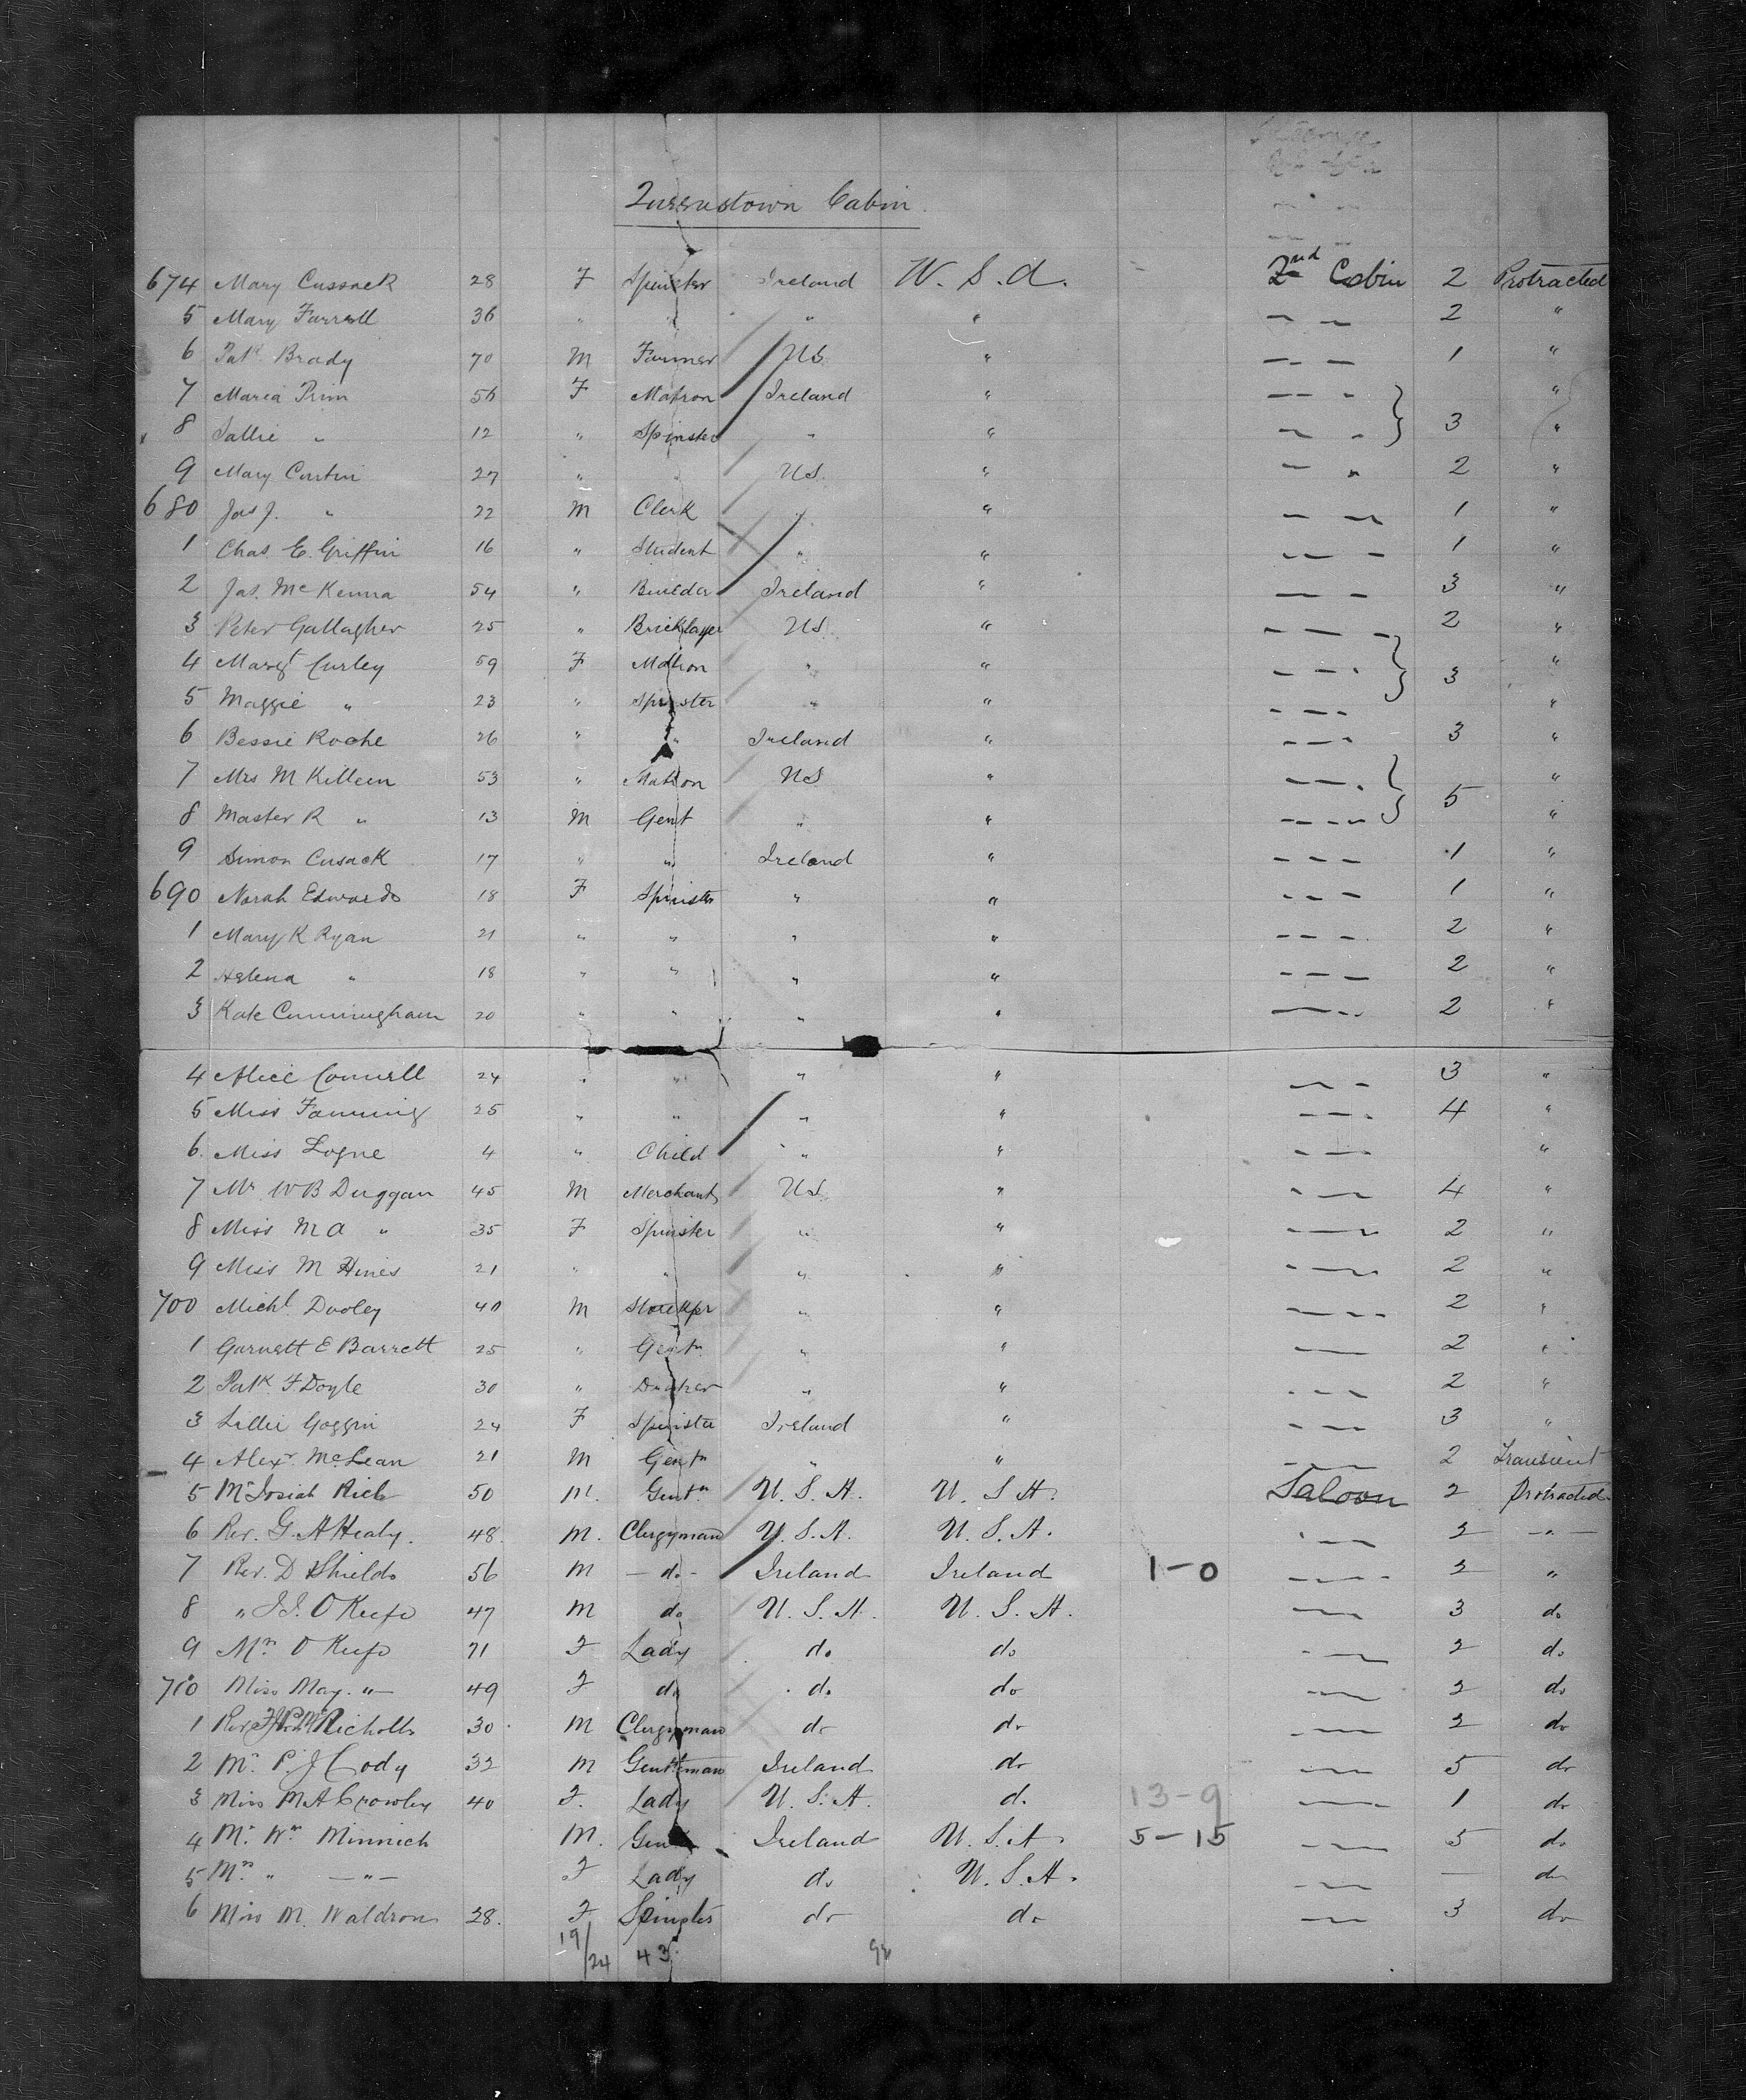 Queenstown Cabin.
674 Mary Cussack 28 F Spinster Ireland U.S.A. 2nd Cabin 2 Protracted
5 Mary Farrell 36 " " " " — — 2 "
6 Patk. Brady 70 M Farmer US " — — 1 "
7 Maria Prim 56 F Matron Ireland " — — "
8 Sallie " 12 " Spinster " " — — 3 "
9 Mary Curtin 27 " " US " — " 2 "
680 Jas J. " 22 M Clerk " " — — 1 "
1 Chas. E. Griffin 16 " Student " " — — 1 "
2 Jas. McKenna 54 " Builder Ireland " — — 3 "
3 Peter Gallagher 25 " Bricklayer US " — — — 2 "
4 Margt Curley 59 F Matron " " — — 3 "
5 Maggie " 23 " Spinster " " — — "
6 Bessie Roche 26 " " Ireland " — — 3 "
7 Mrs M Killeen 53 " Matron US " — — 5 "
8 Master R " 13 M Gent " " — — "
9 Simon Cusack 17 " " Ireland " — — — 1 "
690 Norah Edwards 18 F Spinster " " — — — 1 "
1 Mary K Ryan 21 " " " " — — — 2 "
2 Helena " 18 " " " " — — — 2 "
3 Kate Cunningham 20 " " " " — — 2 "
4 Alice Connell 24 " " " " — — 3 "
5 Miss Fanning 25 " " " " — — 4 "
6. Miss Logue 4 " Child " " — — "
7 Mr W B Duggan 45 M Merchant US " — — 4 "
8 Miss M A " 35 F Spinster " " — — 2 "
9 Miss M Hines 21 " " " " — — 2 "
700 Michl Dooley 40 M Storekpr " " — — 2 "
1 Garnett E Barrett 25 " Gentn " " — 2 "
2 Patk F. Doyle 30 " " " — — 2 "
3 Lillie Goggin 24 F Spinster Ireland " — — 3 "
4 Alexr. McLean 21 M Gentn " " — — 2 Transient
5 Mr Josiah Rich 50 M. Gentn U.S.A. U.S.A. Saloon 2 Protracted
6 Rev. G. A Healy. 48. M. Clergyman U.S.A. U.S.A. — 2 — " —
7 Rev. D Shields 56 M — do - Ireland Ireland 1-0 — — 2 "
8 " J. J. O Keefe 47 M do U.S.A. U.S.A. — 3 do
9 Mrs. O Keefe 71 F Lady do do — 2 do
710 Miss May. " — 49 F do do do — 2 do
1 Rev. Nicholls 30 M Clergyman do do — 2 do
2 Mr. P. J Cody 32 M Gentleman Ireland do — 5 do
3 Miss M A Crowley 40 F. Lady U.S.A. do 13-9 — 1 do
4 Mr. Wm Minnich M. Gent Ireland U.S.A. 5-15 — 5 do
5 Mrs. " — " — F Lady do U.S.A. — — do
6 Miss M. Waldron 28. F Spinster do do — 3 do
19/24 43